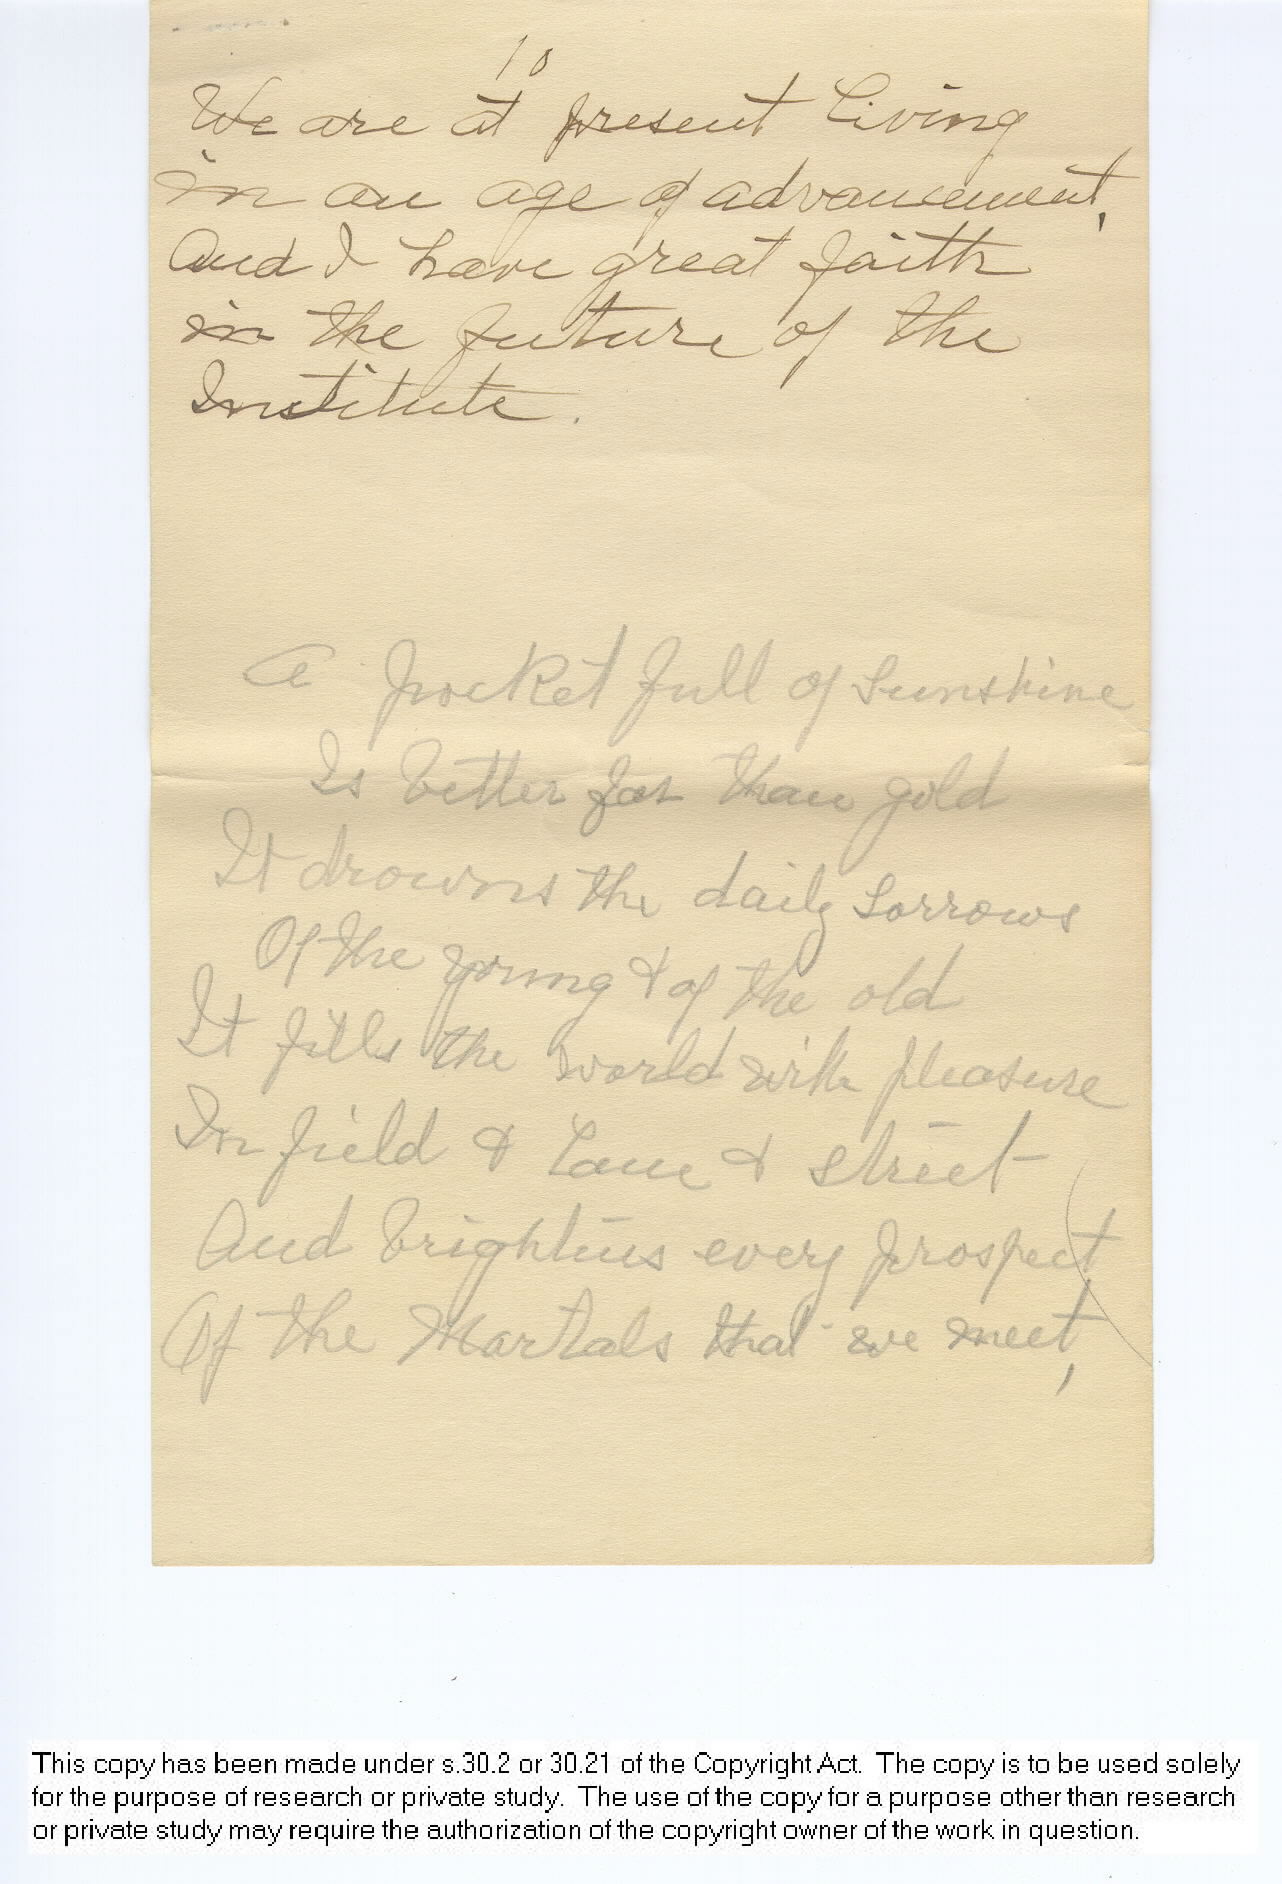 10
We are at present living
in an age of advancement,
and I have great faith
in the future of the
Institute.
A pocket full of sunshine
Is better far than gold
It drowns the daily sorrows
Of the young & of the old
It fills the world with pleasure
In field & lane & street
And brightens every prospect
Of the Mortals that we meet,
This copy has been made under s.30.2 or 30.21 of the Copyright Act. The copy is to be used solely
for the purpose of research or private study. The use of the copy for a purpose other than research
or private study may require the authorization of the copyright owner of the work in question.